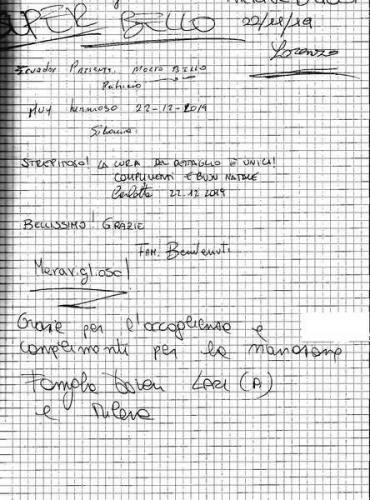 SUPER BELLO 22/12/19
Lorenzo
Ecuador Patients. MOLTO BELLO
Patricio
MUY hermoso 22-12-2019
Silvania
STREPITOSO! LA CURA DEL DETTAGLIO È UNICA!
COMPLIMENTI E BUON NATALE
Carlotta 22.12.2019
BELLISSIMO! GRAZIE
FAM. Benvenuti
Meraviglioso!
Grazie per l'accoglienza e
complimenti per la
Famiglia LARI (A)
e Milena